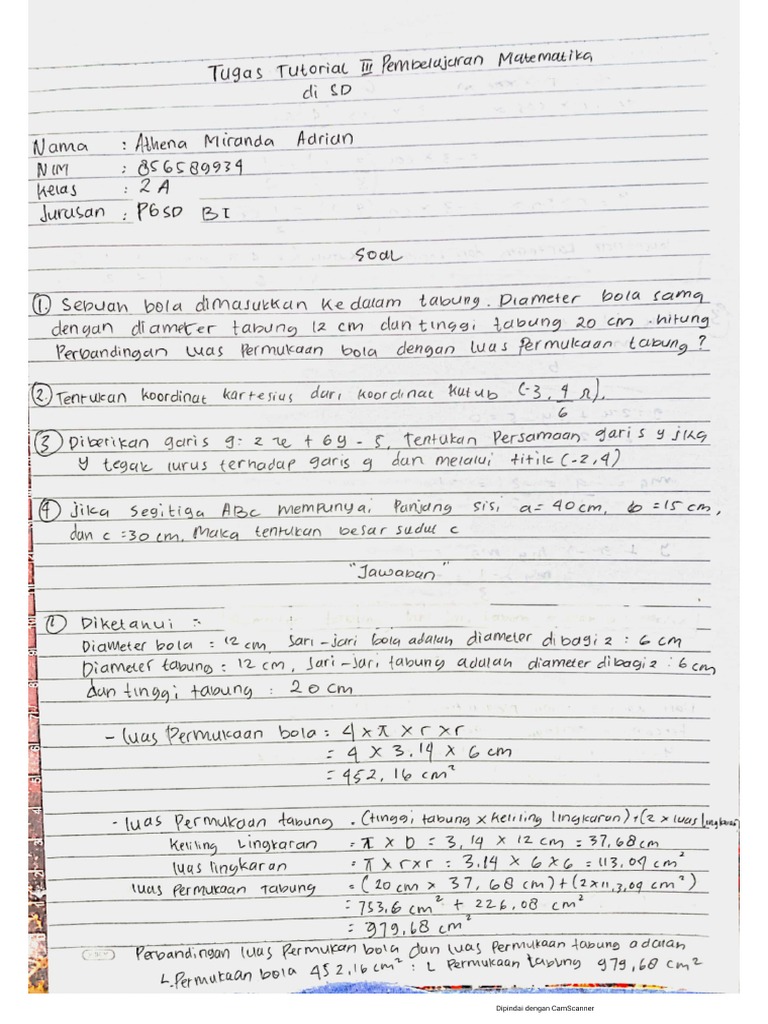 Tugas Tutorial III Pembelajaran Matematika
di SD
Nama : Athena Miranda Adrian
NIM : 856589934
Kelas : 2 A
Jurusan : PGSD BI
Soal
1. Sebuah bola dimasukkan ke dalam tabung. Diameter bola sama
dengan diameter tabung 12 cm dan tinggi tabung 20 cm. hitung
Perbandingan luas permukaan bola dengan luas permukaan tabung?
2. Tentukan koordinat kartesius dari koordinat kutub (-3, 4/6 π).
3. Diberikan garis g: 2x + 6y - 5, Tentukan Persamaan garis y jika
y tegak lurus terhadap garis g dan melalui titik (-2,4)
4. Jika Segitiga ABC mempunyai Panjang sisi a = 40 cm, b = 15 cm,
dan c = 30 cm, Maka tentukan besar sudut c
"Jawaban"
1. Diketahui :-
Diameter bola : 12 cm, Jari-jari bola adalah diameter dibagi 2 : 6 cm
Diameter tabung : 12 cm, Jari-jari tabung adalah diameter dibagi 2 : 6 cm
dan tinggi tabung : 20 cm
- luas Permukaan bola = 4 x π x r x r
= 4 x 3.14 x 6 cm
= 452,16 cm²
- luas Permukaan tabung . (tinggi tabung x Keliling lingkaran) + (2 x luas lingkaran)
Keliling Lingkaran = π x D = 3,14 x 12 cm = 37,68 cm
luas lingkaran = π x r x r = 3.14 x 6 x 6 = 113,04 cm²
luas Permukaan Tabung = (20 cm x 37,68 cm) + (2 x 11,3,04 cm²)
= 753,6 cm² + 226,08 cm²
= 979,68 cm²
Perbandingan luas Permukan bola dan luas Permukaan tabung adalah
L. Permukaan bola 452,16 cm² : L Permukaan tabung 979,68 cm²
Dipindai dengan CamScanner